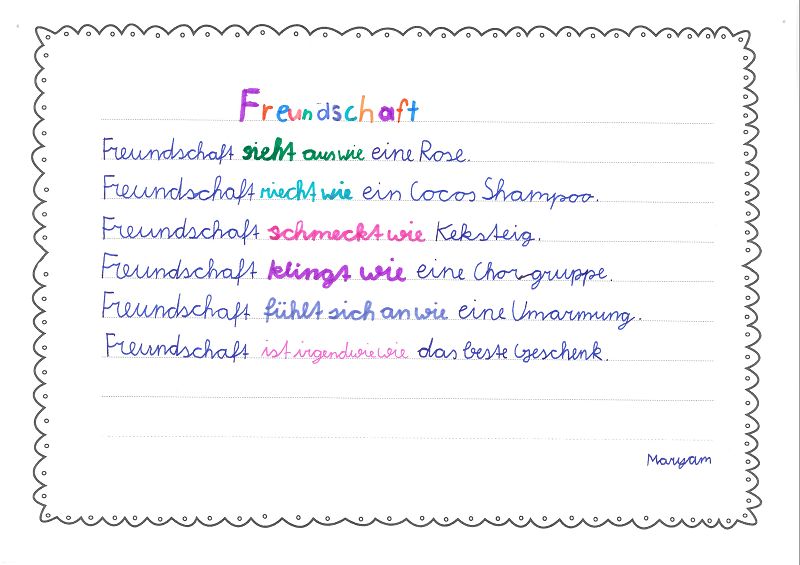 Freundschaft
Freundschaft sieht aus wie eine Rose.
Freundschaft riecht wie ein Cocos Shampoo.
Freundschaft schmeckt wie Keksteig.
Freundschaft klingt wie eine Chorgruppe.
Freundschaft fühlt sich an wie eine Umarmung.
Freundschaft ist irgendwie wie das beste Geschenk.
Maryam